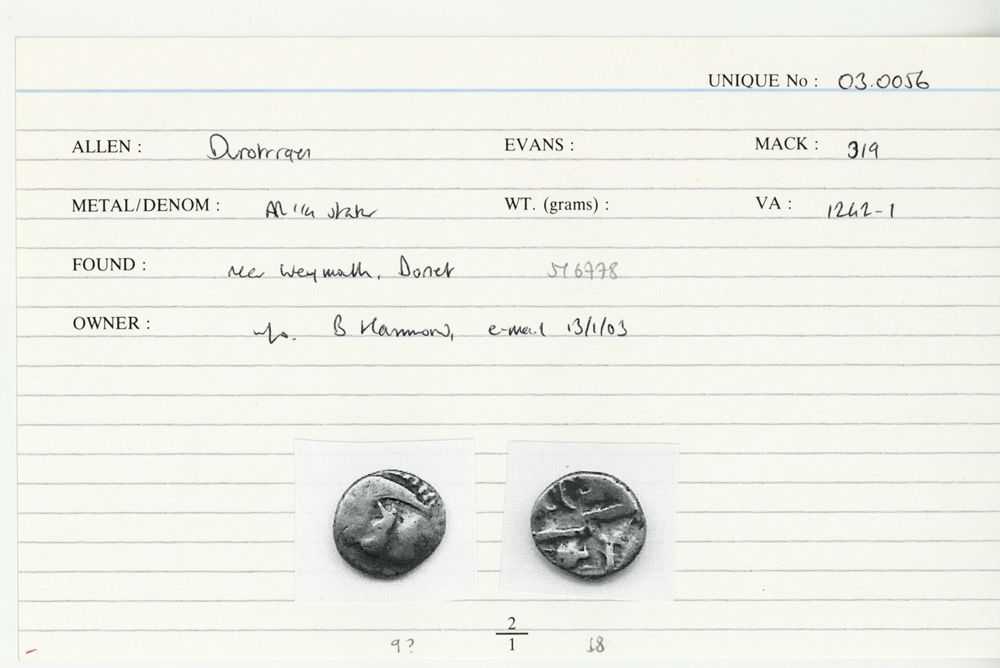 UNIQUE No : 03.0056
ALLEN : Durotriges EVANS : MACK : 319
METAL/DENOM : AR 1/4 stater WT. (grams) : VA : 1242-1
FOUND : near Weymouth, Dorset SY 6778
OWNER : B Hammond, e-mail 13/1/03
2
1
9? 18